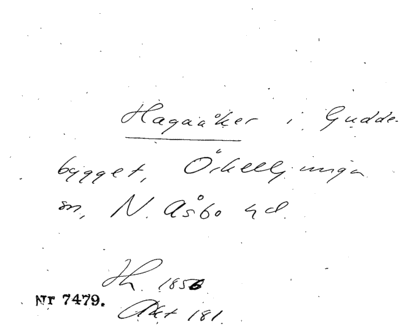 Hagaåker i Gudde-
bygget, Örkelljunga
sn, N. Åsbo hd.
Hh. 1856
Nr 7479.
Akt 181.